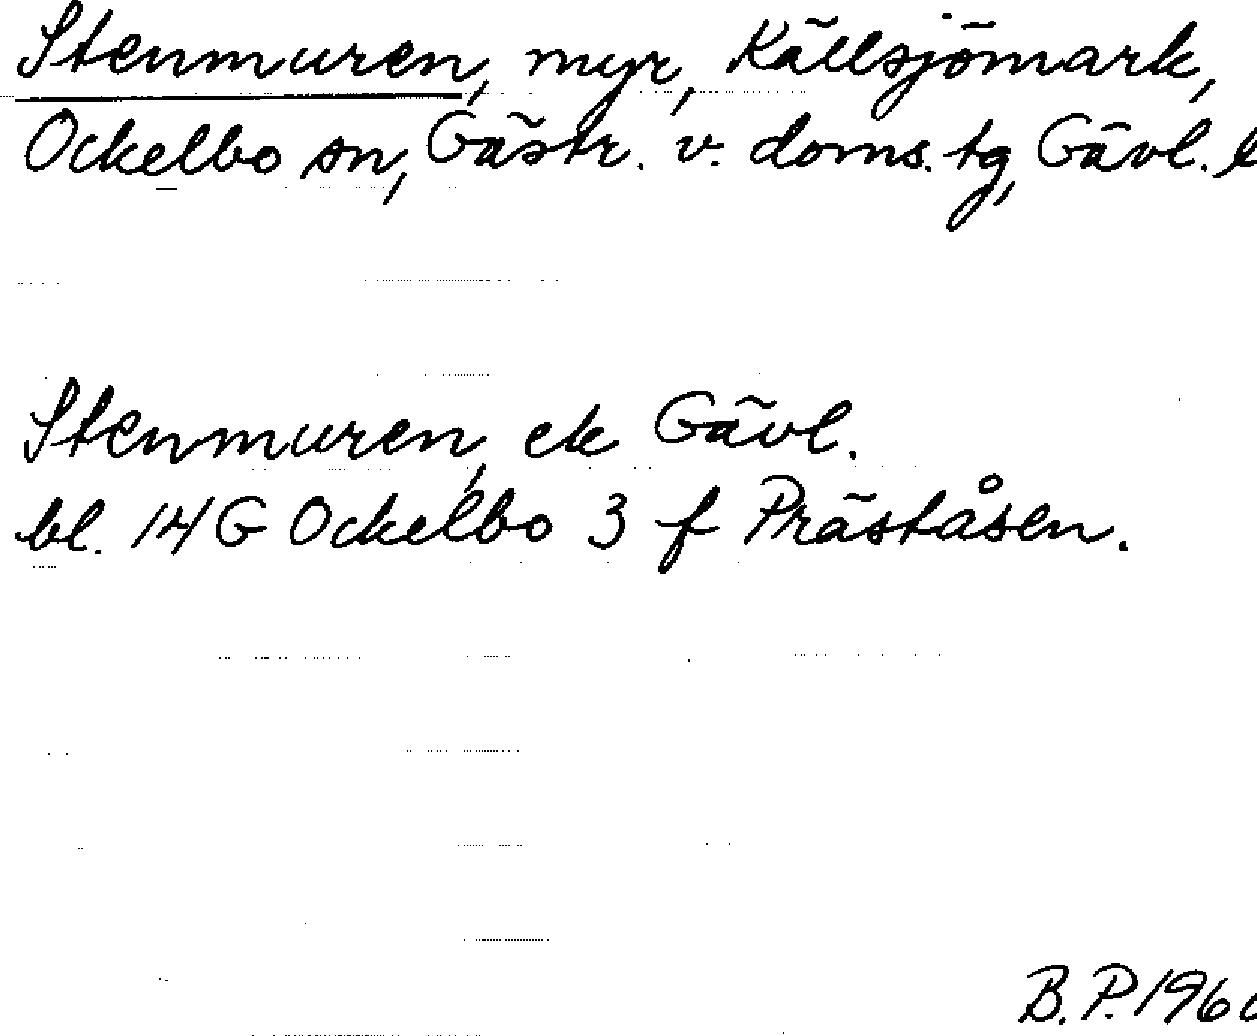 Stenmuren, myr, Källsjömark,
Ockelbo sn, Gästr. v. doms. tg, Gävl. l
Stenmuren, ek Gävl.
bl. 14 G Ockelbo 3 f Präståsen.
B.P. 196